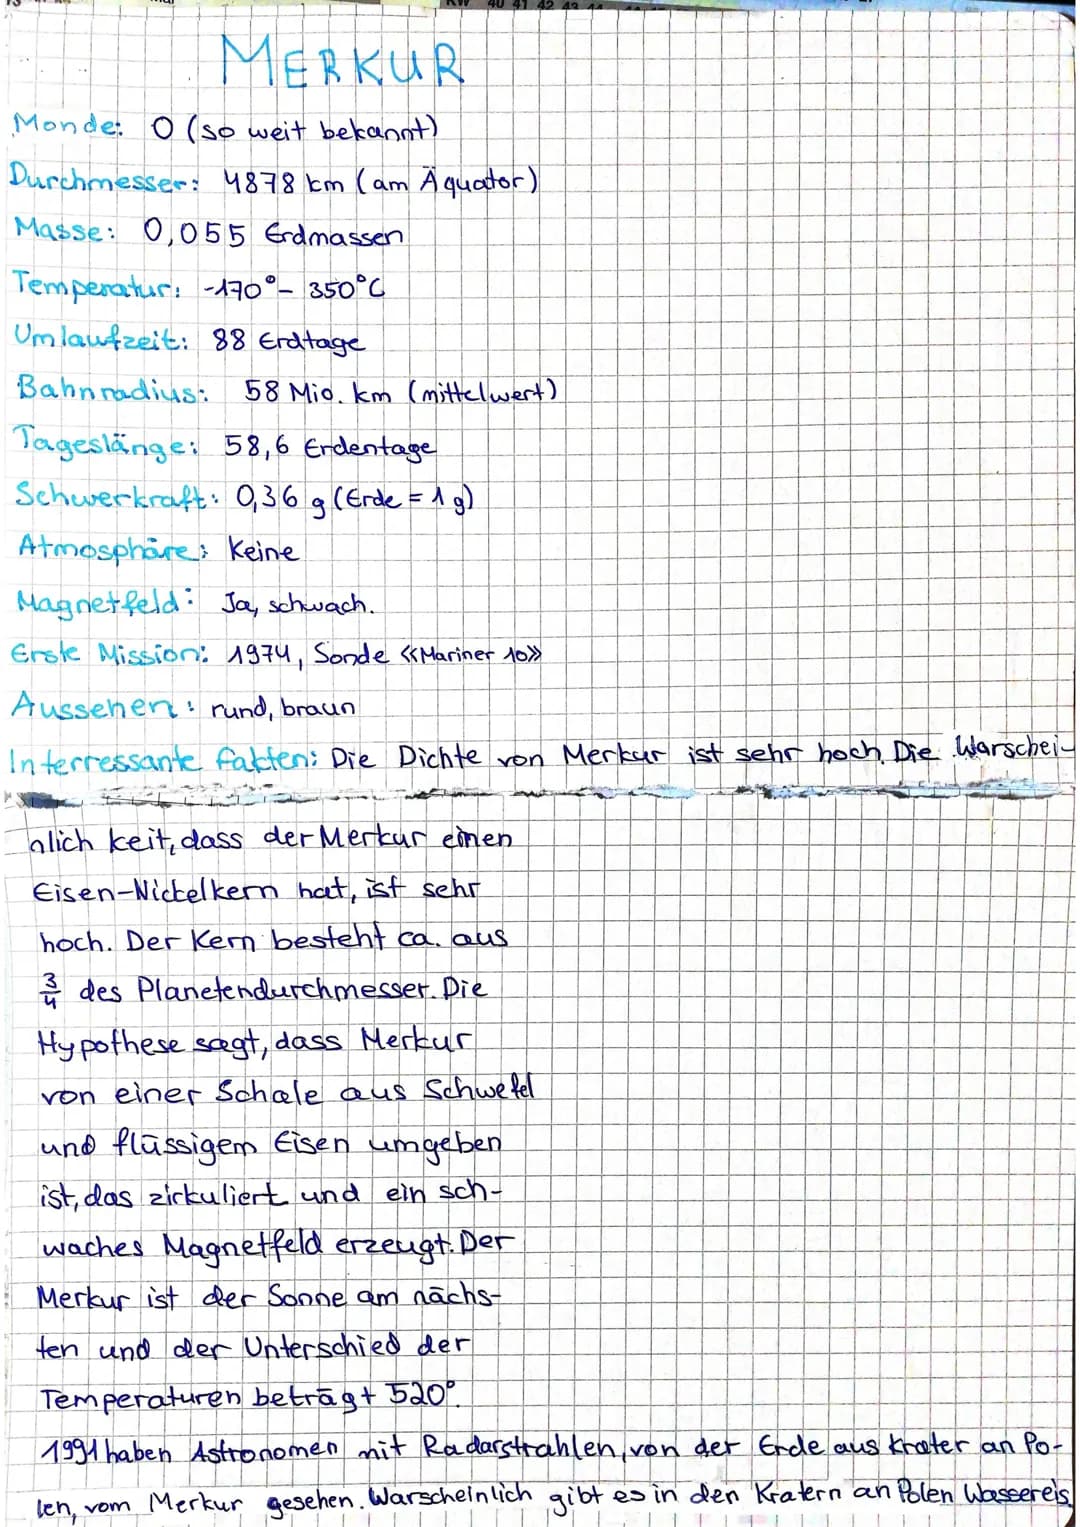 KW 40 41 42 43 44
MERKUR
Monde: 0 (so weit bekannt)
Durchmesser: 4878 km (am Äquator)
Masse: 0,055 Erdmassen
Temperatur: -170° - 350°C
Umlaufzeit: 88 Erdtage
Bahnradius: 58 Mio. km (mittelwert)
Tageslänge: 58,6 Erdentage
Schwerkraft: 0,36 g (Erde = 1 g)
Atmosphäre: Keine
Magnetfeld: Ja, schwach.
Erste Mission: 1974, Sonde «Mariner 10»
Aussehen: rund, braun
Interressante Fakten: Die Dichte von Merkur ist sehr hoch. Die Warschei-
nlich keit, dass der Merkur einen
Eisen-Nickelkern hat, ist sehr
hoch. Der Kern besteht ca. aus
3/4 des Planetendurchmesser. Die
Hypothese sagt, dass Merkur
von einer Schale aus Schwefel
und flüssigem Eisen umgeben
ist, das zirkuliert und ein sch-
waches Magnetfeld erzeugt. Der
Merkur ist der Sonne am nächs-
ten und der Unterschied der
Temperaturen beträgt 520°.
1991 haben Astronomen mit Radarstrahlen, von der Erde aus Krater an Po-
len, vom Merkur gesehen. Warscheinlich gibt es in den Kratern an Polen Wassereis.